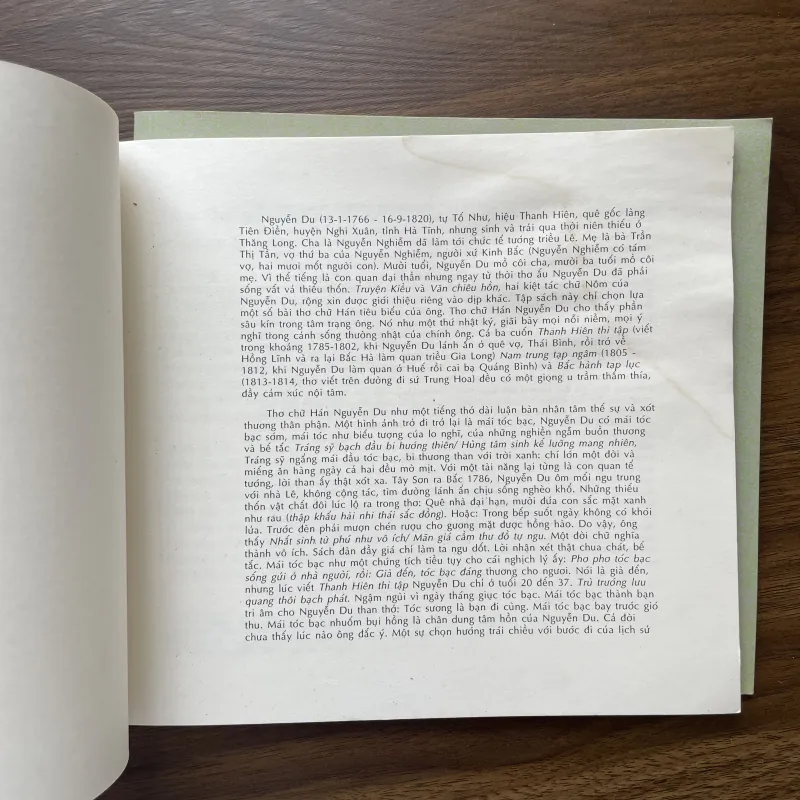 Nguyễn Du (13-1-1766 - 16-9-1820), tự Tố Như, hiệu Thanh Hiên, quê gốc làng
Tiên Điền, huyện Nghi Xuân, tỉnh Hà Tĩnh, nhưng sinh và trải qua thời niên thiếu ở
Thăng Long. Cha là Nguyễn Nghiễm đã làm tới chức tể tướng triều Lê. Mẹ là bà Trần
Thị Tần, vợ thứ ba của Nguyễn Nghiễm, người xứ Kinh Bắc (Nguyễn Nghiễm có tám
vợ, hai mươi mốt người con). Mười tuổi, Nguyễn Du mồ côi cha, mười ba tuổi mồ côi
mẹ. Vì thế tiếng là con quan đại thần nhưng ngay từ thời thơ ấu Nguyễn Du đã phải
sống vất vả thiếu thốn. Truyện Kiều và Văn chiêu hồn, hai kiệt tác chữ Nôm của
Nguyễn Du, rộng xin được giới thiệu riêng vào dịp khác. Tập sách này chỉ chọn lựa
một số bài thơ chữ Hán tiêu biểu của ông. Thơ chữ Hán Nguyễn Du cho thấy phần
sâu kín trong tâm trạng ông. Nó như một thứ nhật ký, giãi bày mọi nỗi niềm, mọi ý
nghĩ trong cảnh sống thường nhật của chính ông. Cả ba cuốn Thanh Hiên thi tập (viết
trong khoảng 1785-1802, khi Nguyễn Du lánh ẩn ở quê vợ, Thái Bình, rồi trở về
Hồng Lĩnh và ra lại Bắc Hà làm quan triều Gia Long) Nam trung tạp ngâm (1805 -
-1812, khi Nguyễn Du làm quan ở Huế rồi cai bạ Quảng Bình) và Bắc hành tạp lục
(1813-1814, thơ viết trên đường đi sứ Trung Hoa) đều có một giọng u trầm thấm thía,
đầy cảm xúc nội tâm.
Thơ chữ Hán Nguyễn Du như một tiếng thở dài luận bàn nhân tâm thế sự và xót
thương thân phận. Một hình ảnh trở đi trở lại là mái tóc bạc, Nguyễn Du có mái tóc
bạc sớm, mái tóc như biểu tượng của lo nghĩ, của những nghiền ngẫm buồn thương
và bế tắc Tráng sỹ bạch đầu bi hướng thiên/ Hùng tâm sinh kế lưỡng mang nhiên,
Tráng sỹ ngẩng mái đầu tóc bạc, bi thương than với trời xanh: chí lớn một đời và
miếng ăn hàng ngày cả hai đều mờ mịt. Với một tài năng lại từng là con quan tể
tướng, lời than ấy thật xót xa. Tây Sơn ra Bắc 1786, Nguyễn Du ôm mối ngu trung
với nhà Lê, không cộng tác, tìm đường lánh ẩn chịu sống nghèo khổ. Những thiếu
thốn vật chất đôi lúc lộ ra trong thơ: Quê nhà đại hạn, mười đứa con sắc mặt xanh
như rau (thập khẩu hài nhi thái sắc đồng). Hoặc: Trong bếp suốt ngày không có khói
lửa. Trước đèn phải mượn chén rượu cho gương mặt được hồng hào. Do vậy, ông
thấy Nhất sinh từ phú như vô ích/ Mãn giá cầm thư đồ tự ngu. Một đời chữ nghĩa
thành vô ích. Sách đàn đầy giá chỉ làm ta ngu dốt. Lời nhận xét thật chua chát, bế
tắc. Mái tóc bạc như một chứng tích tiều tụy cho cái nghịch lý ấy: Pho pho tóc bạc
sống gửi ở nhà người, rồi: Già đến, tóc bạc đáng thương cho ngươi. Nói là già đến,
nhưng lúc viết Thanh Hiên thi tập Nguyễn Du chỉ ở tuổi 20 đến 37. Trù trướng lưu
quang thôi bạch phát. Ngậm ngùi vì ngày tháng giục tóc bạc. Mái tóc bạc thành bạn
tri âm cho Nguyễn Du than thở: Tóc sương là bạn đi cùng. Mái tóc bạc bay trước gió
thu. Mái tóc bạc nhuốm bụi hồng là chân dung tâm hồn của Nguyễn Du. Cả đời
chưa thấy lúc nào ông đắc ý. Một sự chọn hướng trái chiều với bước đi của lịch sử